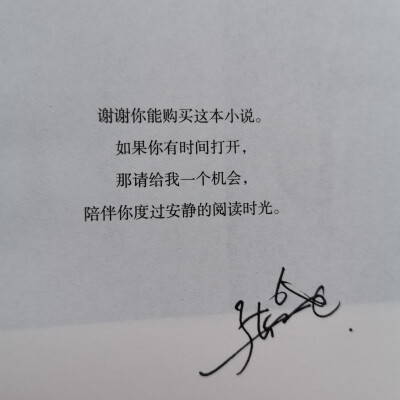 谢谢你能购买这本小说。
如果你有时间打开，
那请给我一个机会，
陪伴你度过安静的阅读时光。